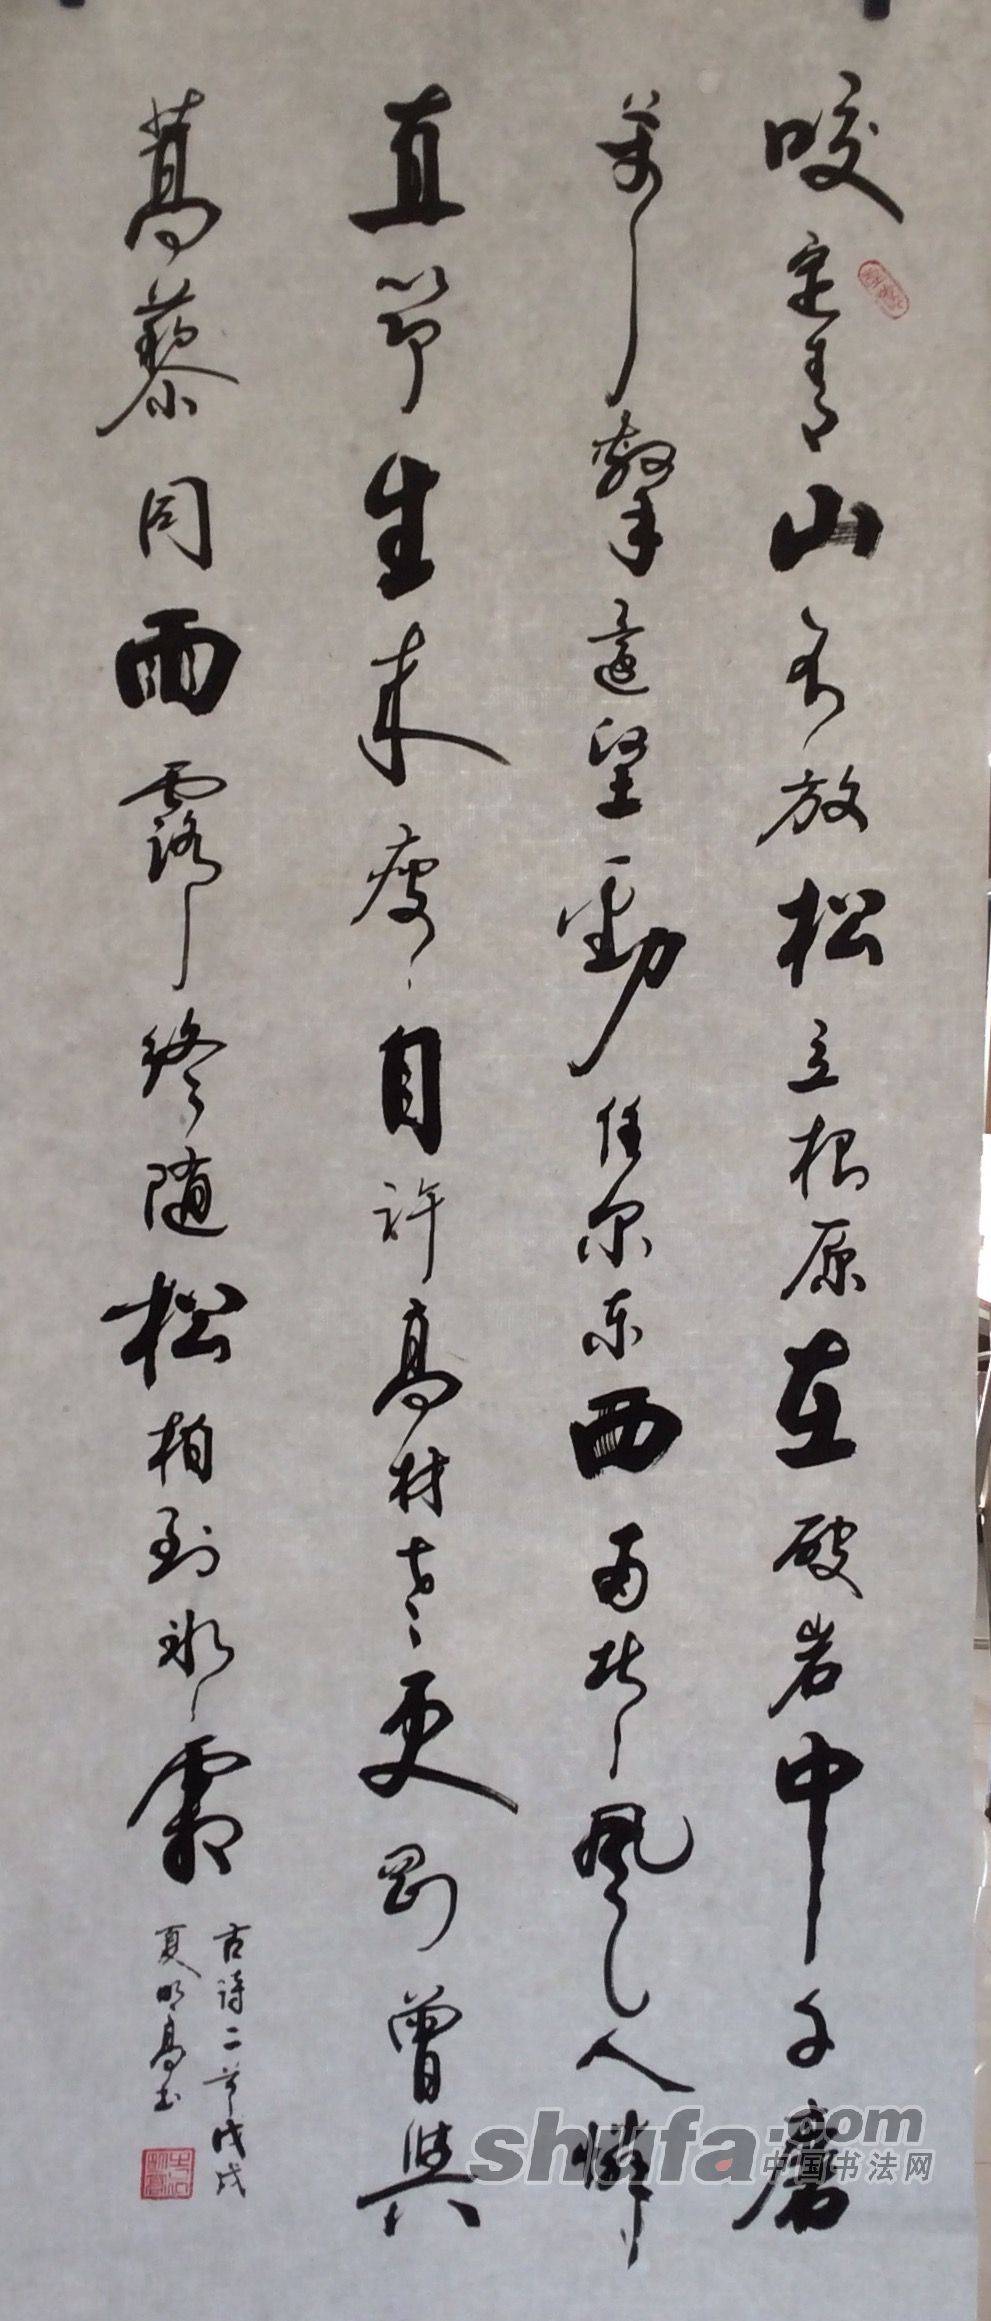 咬定青山不放松立根原在破岩中千磨
萬擊還堅勁任尔东西南北風人憐
直节生来瘦自許高材老更刚曾與
蒿藜同雨露终随松柏到冰霜
古诗二首戊戌
夏明高书
shufa.com
中国书法网